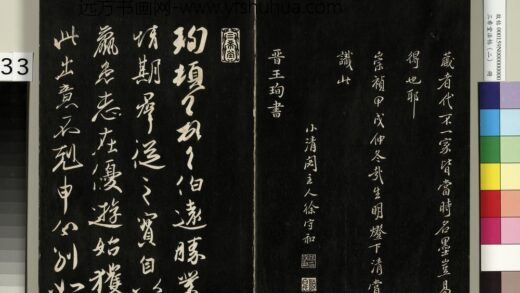 远方书画网-www.yfshuhua.com
33
藏者代不一家皆當時名墨豈易
得也耶
崇禎甲戌仲冬哉生明燈下清賞
識此
小清閟主人徐守和
晉王珣書
珣頓首頓首伯遠勝業
情期群從之寶自以
羸患志在優遊始獲
此出意不剋申分別如